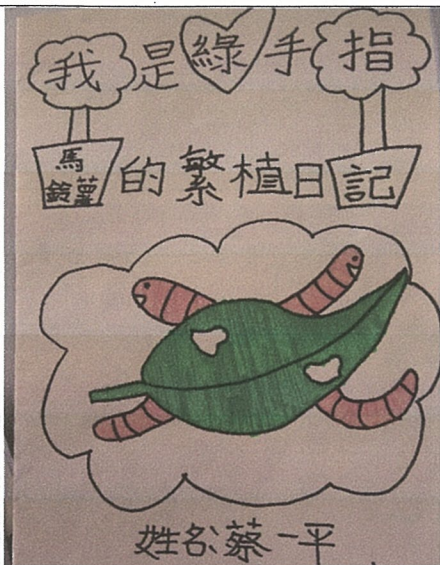 我是綠手指
馬鈴薯的繁植日記
姓名:蔡一平